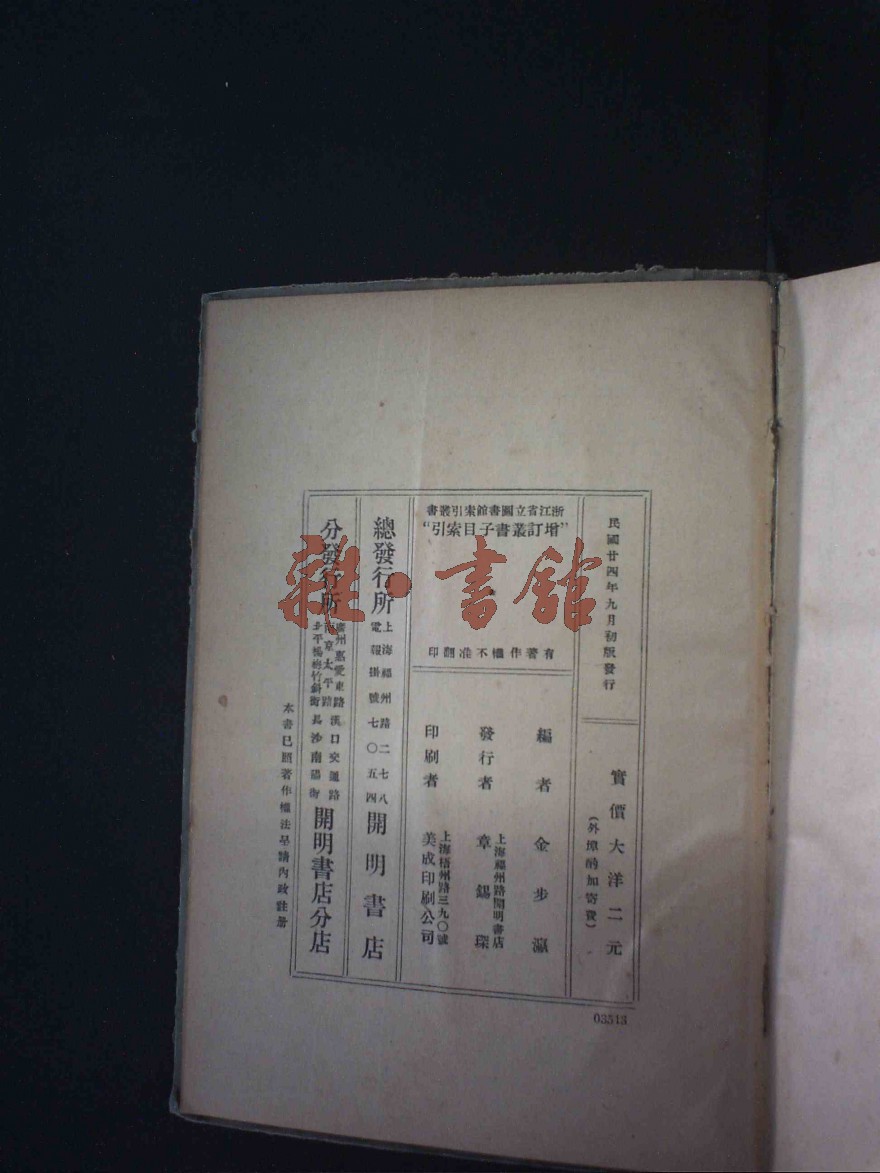 民國廿四年九月初版發行
實價大洋二元
(外埠酌加寄費)
浙江省立圖書館索引叢書
“增訂叢書子目索引”
有著作權不准翻印
編者 金步瀛
發行者 上海福州路開明書店
章錫琛
印刷者 上海梧州路三九〇號
美成印刷公司
總發行所 上海福州路二七八
電報掛號七〇五四
開明書店
分發行所 廣州惠愛東路 漢口交通路
南京太平路
北平楊梅竹斜街 長沙南陽街
開明書店分店
本書已照著作權法呈請內政註册
雜·書館